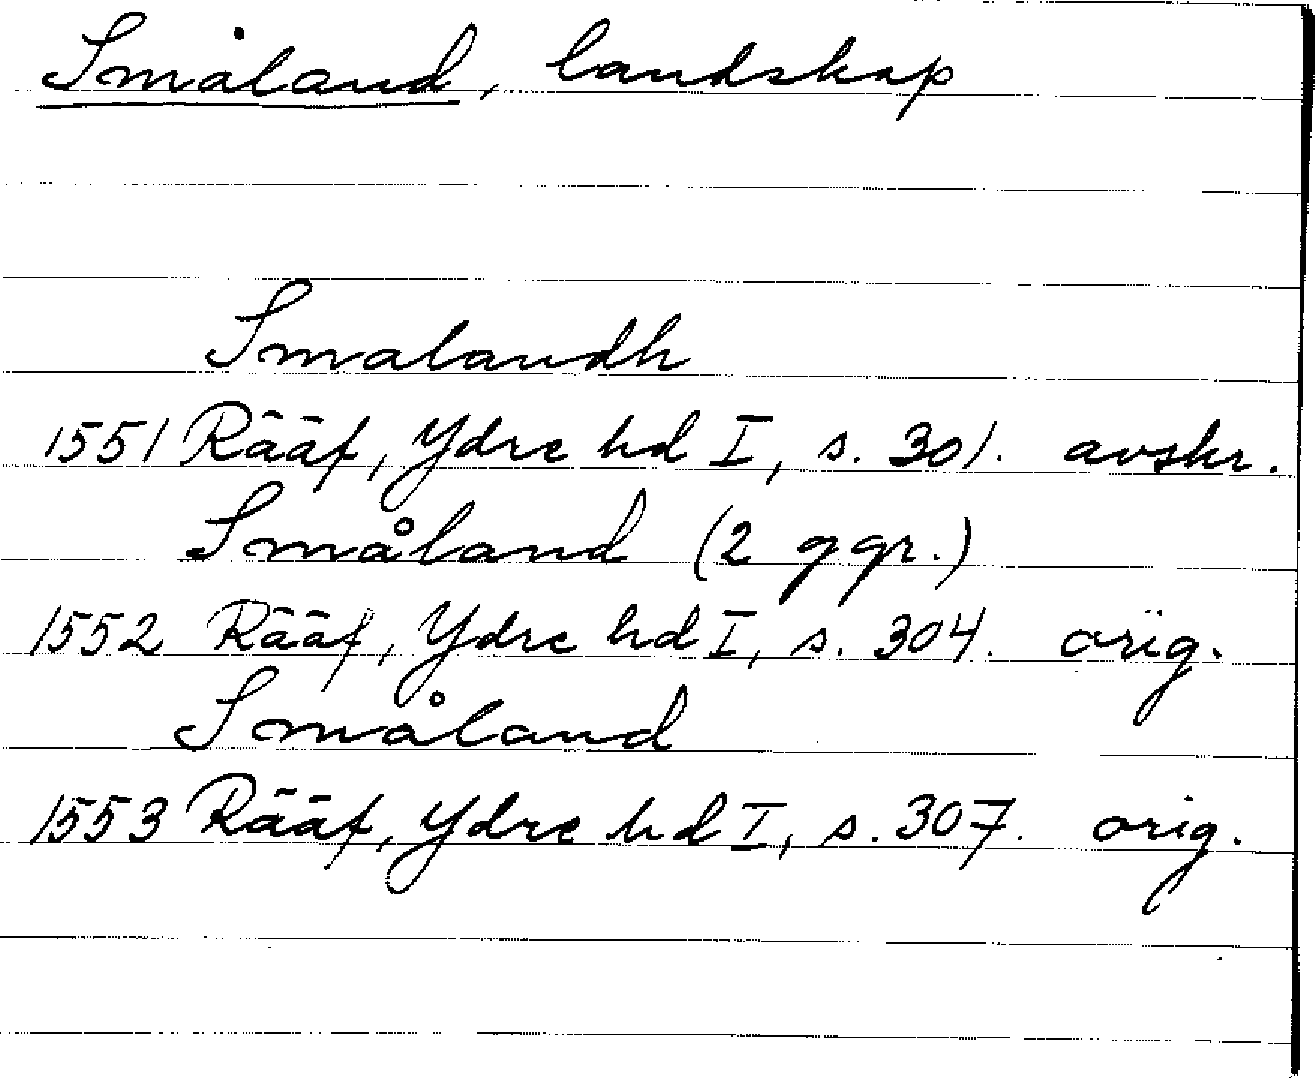 Småland, landskap
Smalandh
1551 Rääf, Ydre hd I, s. 301. avskr.
Småland (2 ggr.)
1552 Rääf, Ydre hd I, s. 304. orig.
Småland
1553 Rääf, Ydre hd I, s. 307. orig.